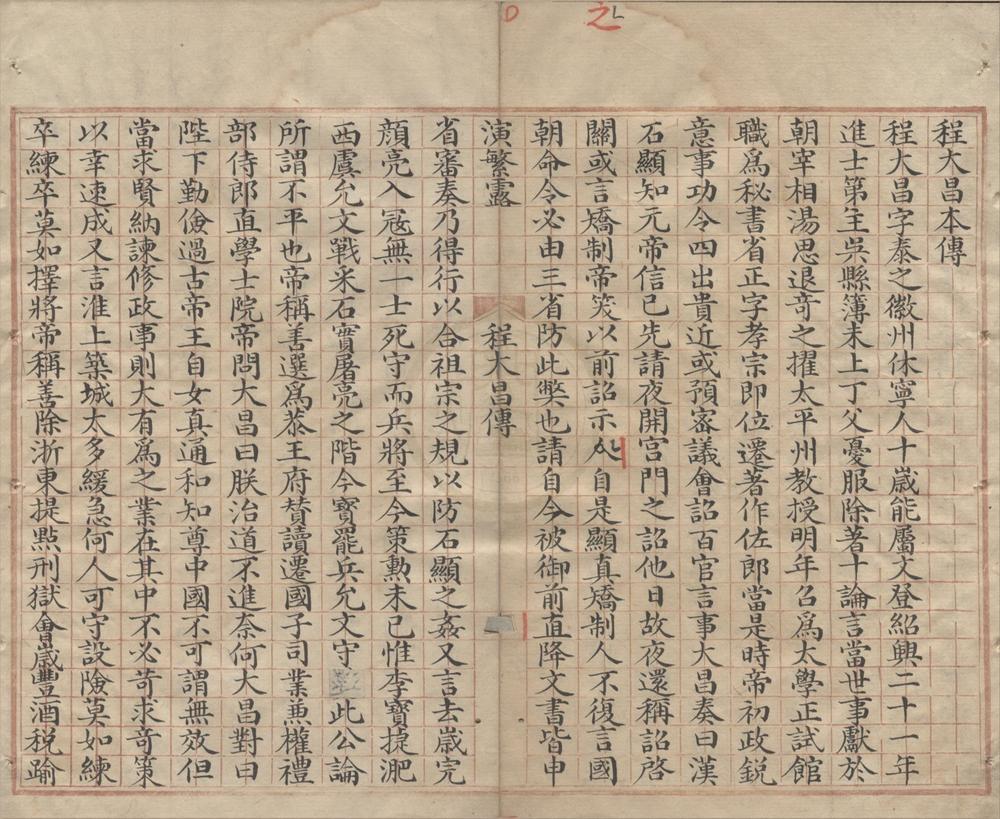 之
程大昌本傳
程大昌字泰之徽州休寧人十歲能屬文登紹興二十一年
進士第主吳縣簿未上丁父憂服除著十論言當世事獻於
朝宰相湯思退奇之擢太平州教授明年召爲太學正試館
職爲秘書省正字孝宗即位遷著作佐郎當是時帝初政銳
意事功令四出貴近或預密議會詔百官言事大昌奏曰漢
石顯知元帝信已先請夜開宮門之詔他日故夜還稱詔啓
關或言矯制帝笑以前詔示人自是顯真矯制人不復言國
朝命令必由三省防此獘也請自今被御前直降文書皆申
演繁露 程大昌傳
省審奏乃得行以合祖宗之規以防石顯之姦又言去歲完
顏亮入寇無一士死守而兵將至今策勲未已惟李寶捷淝
西虞允文戰采石實屠亮之階今寶罷兵允文守 此公論
所謂不平也帝稱善選爲恭王府賛讀遷國子司業兼權禮
部侍郎直學士院帝問大昌曰朕治道不進奈何大昌對曰
陛下勤儉過古帝王自女真通和知尊中國不可謂無效但
當求賢納諫修政事則大有爲之業在其中不必苛求奇策
以幸速成又言淮上築城太多緩急何人可守設險莫如練
卒練卒莫如擇將帝稱善除浙東提點刑獄會歲豐酒稅踰